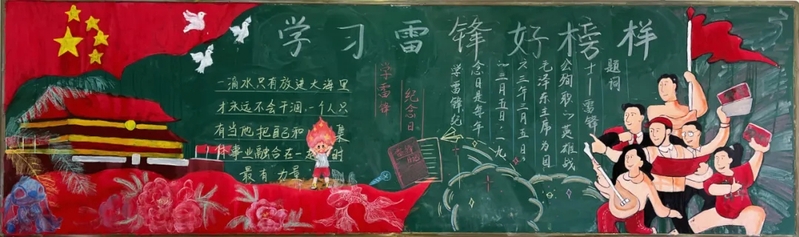 学习雷锋好榜样
一滴水只有放进大海里
才永远不会干涸，一个人只
有当他把自己和集
体事业融合在一起时
最有力量
学雷锋
纪念日
学雷锋纪
念日是每年
的三月五日，一九
六三年三月五日，
毛泽东主席为因
公殉职的英雄战
士——雷锋
题词